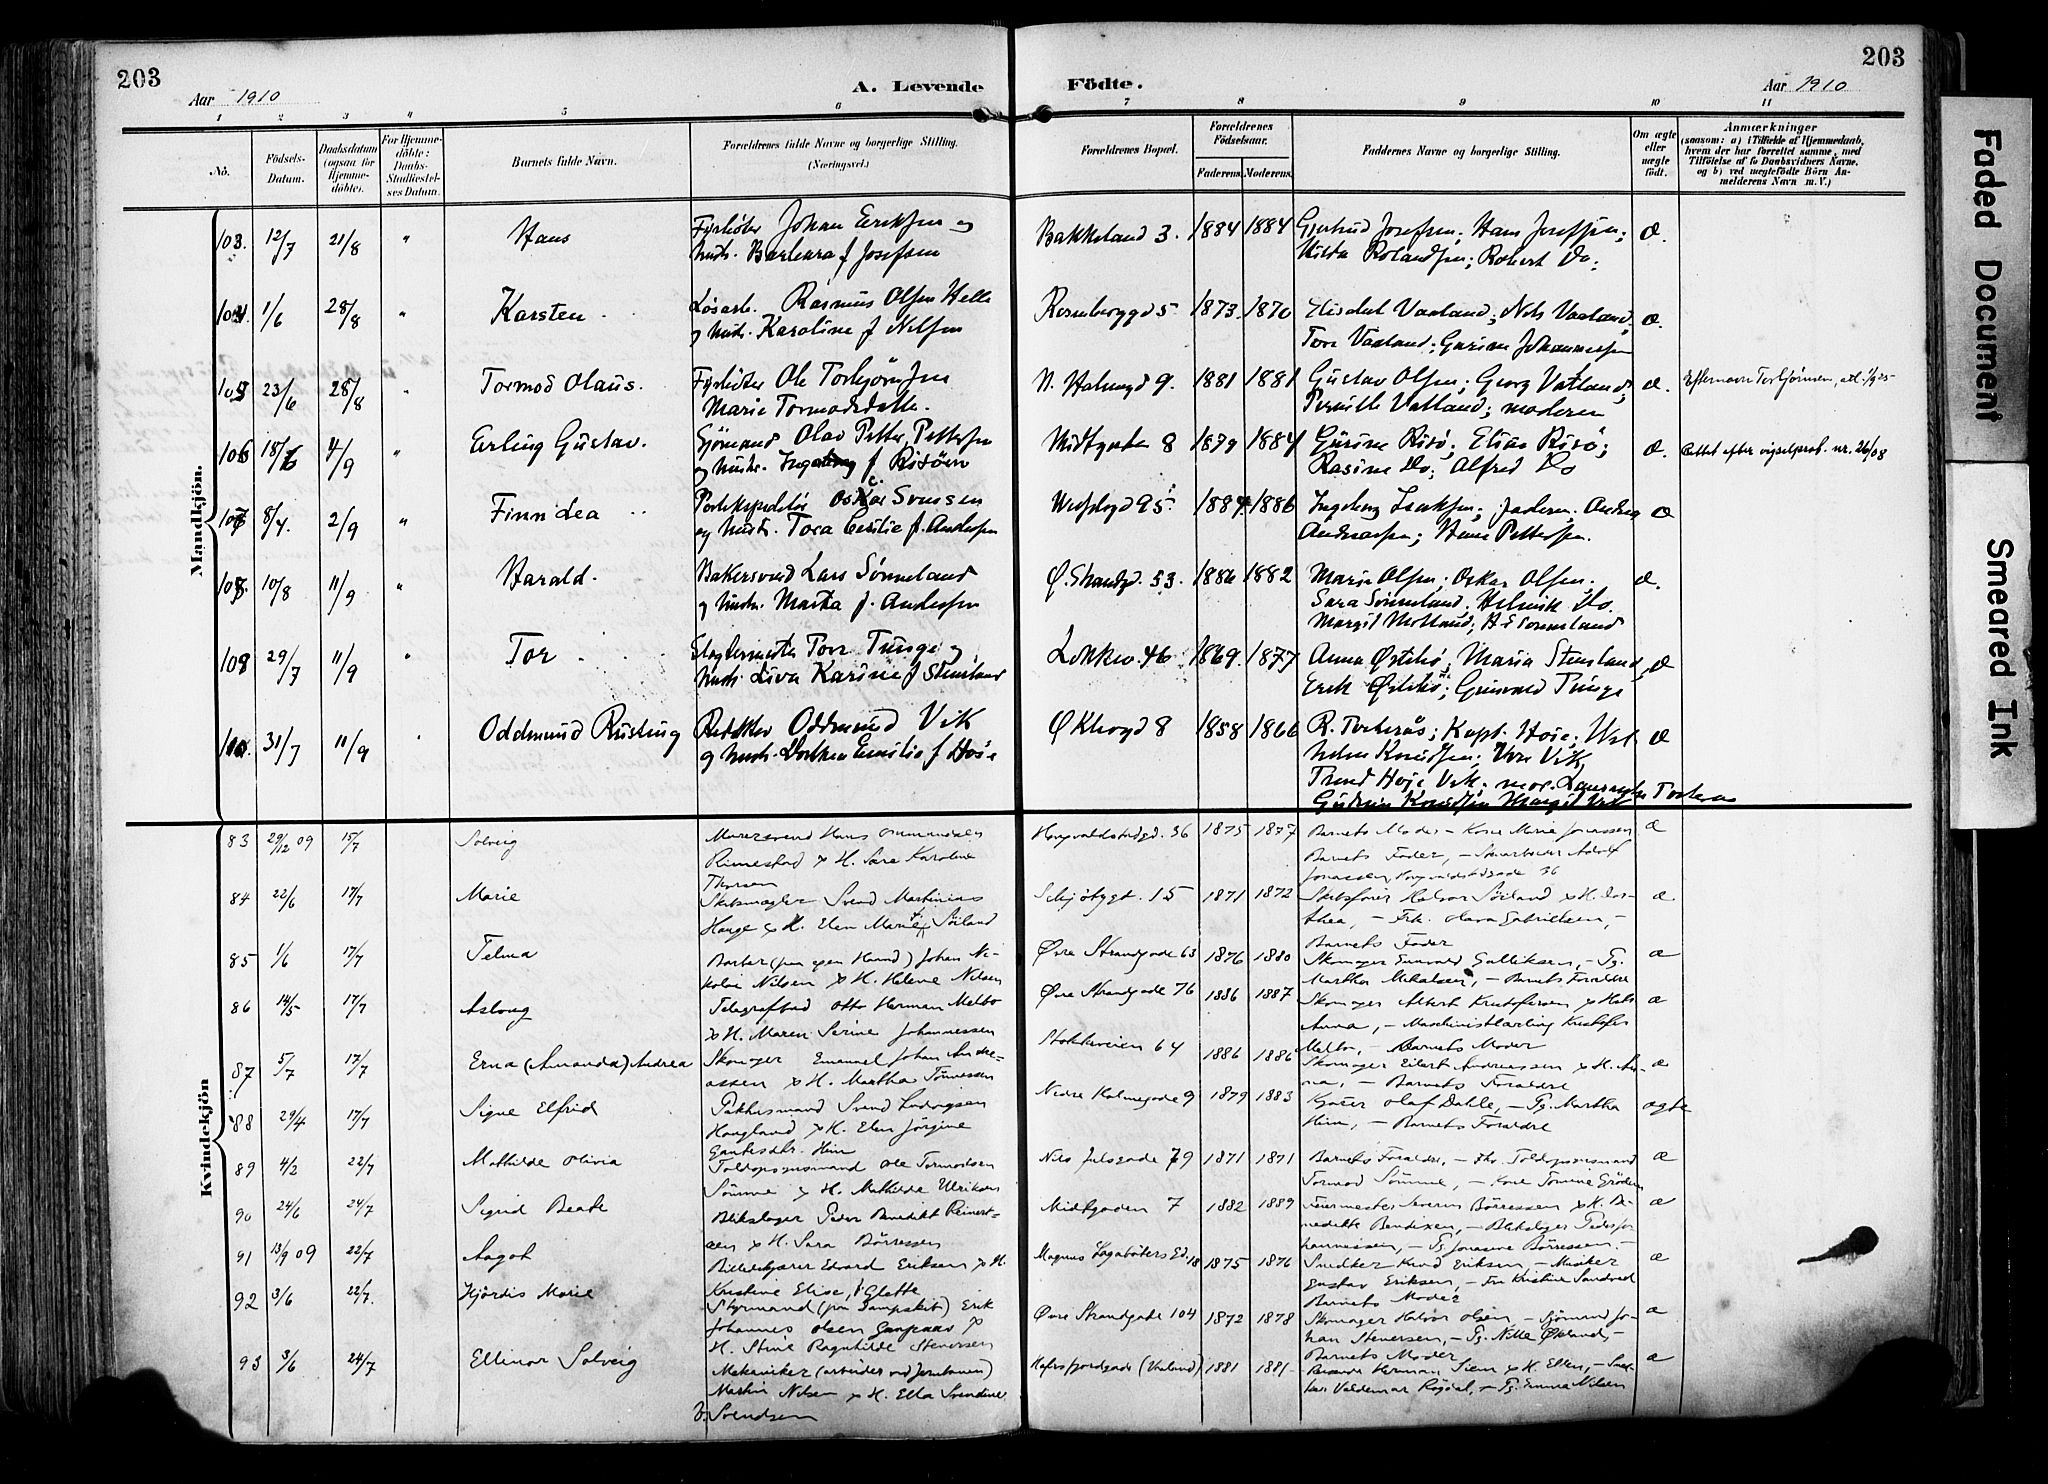 203
203
Aar 1910
A. Levende
Födte.
Aar 1910
1 2 3 4 5 6 7 8 9 10 11
No.
Födsels-Datum.
Daabsdatum (ogsaa for Hjemme-döbte).
For Hjemme-döbte: Daabs-Stadfæstel-ses Datum.
Barnets fulde Navn.
Forældrenes fulde Navne og borgerlige Stilling. (Næringsvei.)
Forældrenes Bopæl.
Forældrenes Födselsaar.
Faderens. Moderens.
Faddernes Navne og borgerlige Stilling.
Om ægte eller uægte født.
Anmærkninger
(saasom: a) i Tilfælde af Hjemmedaab, hvem der har forrettet samme, med Tilföielse af to Daabsvidners Navne, og b) ved uægtefödte Börn An-melderens Navn m. V.)
Mandkjön.
103. 12/7 21/8 " Hans
Fyrbøter Johan Eriksen og
hust. Barbara f. Josefsen
Bakkeland 3. 1884 1884
Gjertrud Josefsen; Hans Josefsen;
Hilda Rolandsen; Robert Do.
æ.
104. 1/6 28/8 " Karsten
Løsarb. Rasmus Olsen Helle
og hust. Karoline f Nilsen
Rosenberggd 5 1873. 1870
Elisabet Vaaland; Nils Vaaland,
Tore Vaaland; Gurine Johannessen
æ.
105 23/6 28/8 " Tormod Olaus.
Fyrbøter Ole Torbjørnsen
Marie Tormodsdatter.
N. Holmegd 9. 1881 1881
Gustav Olsen; Georg Vatland;
Pernille Vatland; moderen
æ. Efternavn Torbjörnsen,
106 18/6 4/9 " Erling Gustav.
Sjömand Olav Petter Pettersen
og hust. Ingeborg f Risöen
Midtgaten 8 1879 1884
Gurine Risø; Elias Risø;
Rasine Do; Alfred Do
æ. Rettet efter vigselprot. nr. 26/08
107 8/4. 2/9 " Finn Lea
Postekspeditör Oskar Svensen
og hust. Tora Cecilie f. Andersen
Vestfoldgd 95 1884 1886
Ingeborg Isaksen; faderen; Andrea
Andreassen; Hans Pettersen.
æ
108 10/8 11/9 " Harald.
Bakersvend Lars Sönneland
og hust. Marta f. Andersen
Ø. Strandgd. 53. 1886 1882
Marie Olsen; Oskar Olsen.
Sara Sönneland; Helmik Do.
Margit
æ.
109 29/7 11/9 " Tor
Slagtermester Tore Tunge og
hust. Liva Karine f Stensland
Løkkev. 46 1869. 1877
Anna Østebø; Maria Stensland,
Erik Østebø; Gunvald Tunge
æ
110. 31/7 11/9 Oddmund Rustung
Redaktør Oddmund Vik
og hust. Dorthea Emilie f Høie
Ø Kleivgd 8 1858 1866
R. Torkerås; Kapt. Høie; Wil-
helm Knudsen; Vik
Trond Høje Vik; mor. Laurentse Torkeraas
Gudrun Knudsen Margit Vik
æ
Kvindekjön
83 29/12 09 15/7 Solveig
Murersvend Hans Ommundsen
Rimestad & H. Sara Karoline
Thorsen
Haugvaldstadgd. 36 1875 1877
Barnets Moder – Kone Marie Jonassen
Barnets Fader, – Murer Adolf
Jonassen, Haugvaldstadgade 36
æ
84 22/6 17/7 Marie
Skibsmægler Svend Martinius
Hauge & H. Elen Marie f. Sörland
Schjötzgt. 15 1871 1872
Skibsförer Halvor Sörland & H. Doro-
thea, – Frk. Olava Gabrielsen, –
Barnets Fader
æ
85 1/6 17/7 Telma
Barber (paa egen Haand) Johan Ni-
kolai Nilsen & H. Helene Nilsen
Øvre Strandgade 63 1876 1880
Skomager Gulliksen, – Pg.
Martha Mikalsen, – Barnets Forældre
æ
86 14/5 17/7 Aslaug
Telegrafbud Otto Herman Melbo
& H. Maren Serine Johannessen
Øvre Strandgade 76 1886 1887
Skomager Albert Kristofersen & H.
Anna, – Maskinistlærling Kristofer
Melbo, – Barnets Moder
æ
87 5/7 17/7 Erna (Amanda) Andrea
Skomager Emanuel Johan Andre-
assen & H. Martha Tönnessen
Stokkeveien 64 1886 1886
Skomager Eilert Andreassen & H. An-
na, – Barnets Forældre
æ
88 29/4 17/7 Signe Elfrid
Pakhusmand Svend Ludvigsen
Haugland & H. Elen Jörgine
Gautesdtr. Heim
Nedre Holmegade 9 1879 1883
Olaf Dahle, – Pg. Martha
Heim, – Barnets Forældre
ægte
89 4/2 22/7 Mathilde Olivia
Toldopsynsmand Ole Tormodsen
Sömme & H. Mathilde Ulriksen
Nils Juelsgade 79 1871 1871
Barnets Forældre, – Fhv. Toldopsynsmand
Tormod Sömme, – Kone Tomine Gröden
æ
90 24/6 24/7 Sigrid Beate
Blikslager Peder Benedikt Reinert-
sen & H. Sara Börressen
Midtgaden 7 1882 1889
Feiermester Severin Börressen & H. Be-
nedikte Bendixen, – Blikslager Peder Jo-
hannessen, – Pg. Jonasine Börressen. –
æ
91 13/9 09 22/7 Aagot
Billedskjærer Edvard Eriksen & H.
Kristine Elise, f. Glette
Magnus Lagabøters Gd. 18 1875 1876
Snedker Knud Eriksen, – Musiker
Gustav Eriksen, – Fru Kristine Sandved
Barnets Moder
æ
92 3/6 22/7. Hjördis Marie
Styrmand (paa Dampskib) Erik
Johannes Olsen Gaupaas &
H. Stine Ragnhilde Stenersen
Øvre Strandgade 104 1872 1878
Skomager Halvor Olsen, – Sjömand Jo-
han Stenersen, – Pg. Nille Økland, –
Barnets Moder
æ
93 3/6 24/7 Ellinor Solveig
Mekaniker (arbeider ved Jernbanen)
Martin Nilsen & H. Ella Svendine
f. Svendsen
Hafrsfjordgade (Vaaland) 1881 1881
Herman Siem & H. Ellen, – Sned-
ker Valdemar Rögdal, – Pg. Emma Nilsen
æ
Faded Document
Smeared Ink